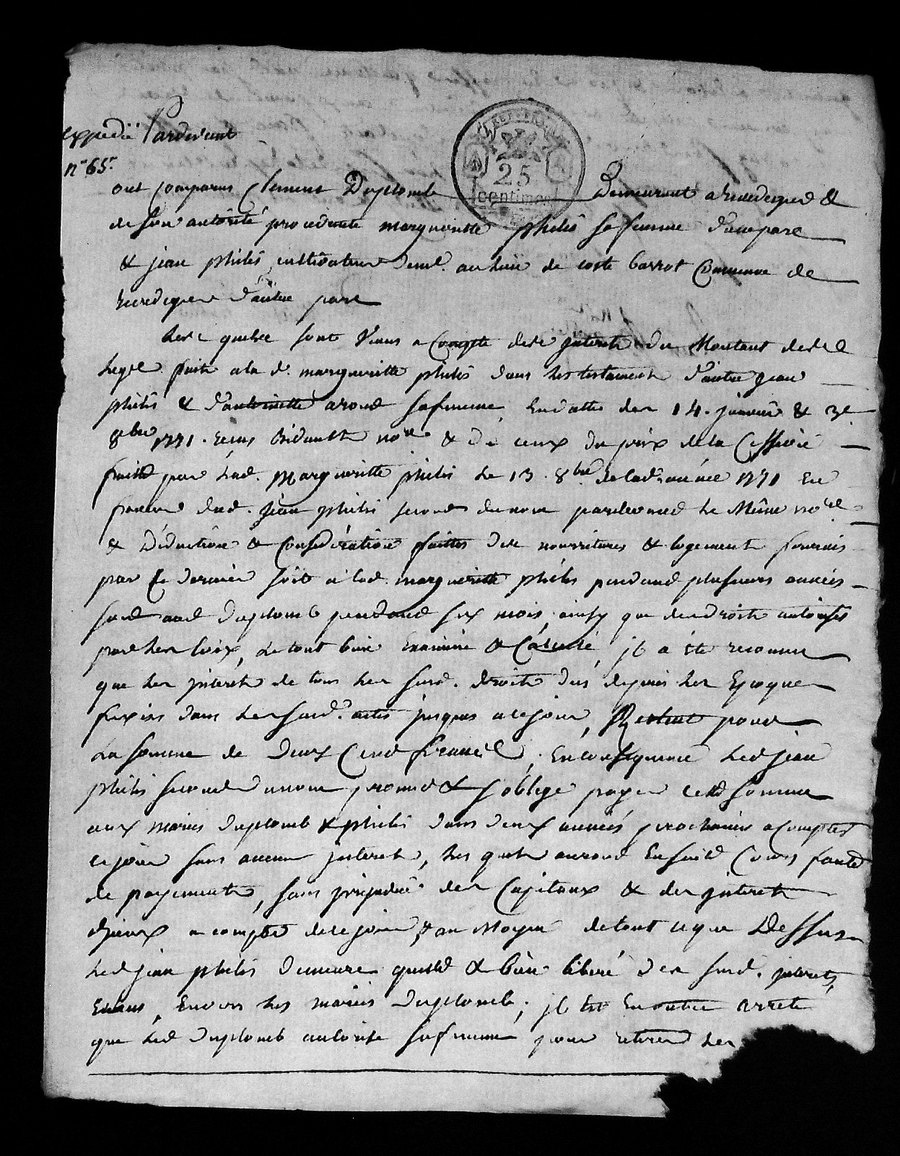 expedié Pardevant
n° 65.
25
centimes
ont comparus Clement Duplomb Demeurant a &
de son autorité procedante margueritte philis sa femme d'une part
& jean philis, cultivateur demt. au lieu de coste barrot Commune de
d'autre part
les quels sont Venus a Compte des interets du Montant de
legs faits a lad. margueritte philis dans les testaments d'autre jean
philis & d'antoinette arond sa femme En datte des 14. janvier & 3e
8bre 1771. recus nore & de ceux du prix de la Cession
faitte par lad. Margueritte philis le 13. 8bre de lad. année 1771 En
faveur dud. jean philis second du nom pardevant le Même nore
& Déduction & Considération faittes des nourritures & logement fournis
par Ce dernier soit a lad. margueritte philis pendant plusieurs années
soit aud. Duplomb pendant six mois, ainsy que des droits autorisés
par les loix, le tout bien Examiné & Calculé, jl a été reconnu
que les jnterets de tous les susd. droits dus depuis les Epoques
fixées dans les susd. actes jusques a ce jour, Restent pour
La somme de Deux Cent francs; En consequence led. jean
philis second du nom promet & s'oblige payer cette somme
aux maries Duplomb & philis dans deux années prochaines a compter
ce jour sans aucun jnteret, les quels auront Ensuite Cours faute
de payement, sans prejudice des Capitaux & des jnterets
d'jceux a compter de ce jour, & au Moyen de tout ce que Dessus
Led. jean philis demeure quitte & bien libéré des susd. jnterets,
Envers les maries Duplomb; jl est En outre arreté
que led. Duplomb autorise sa femme pour retirer les